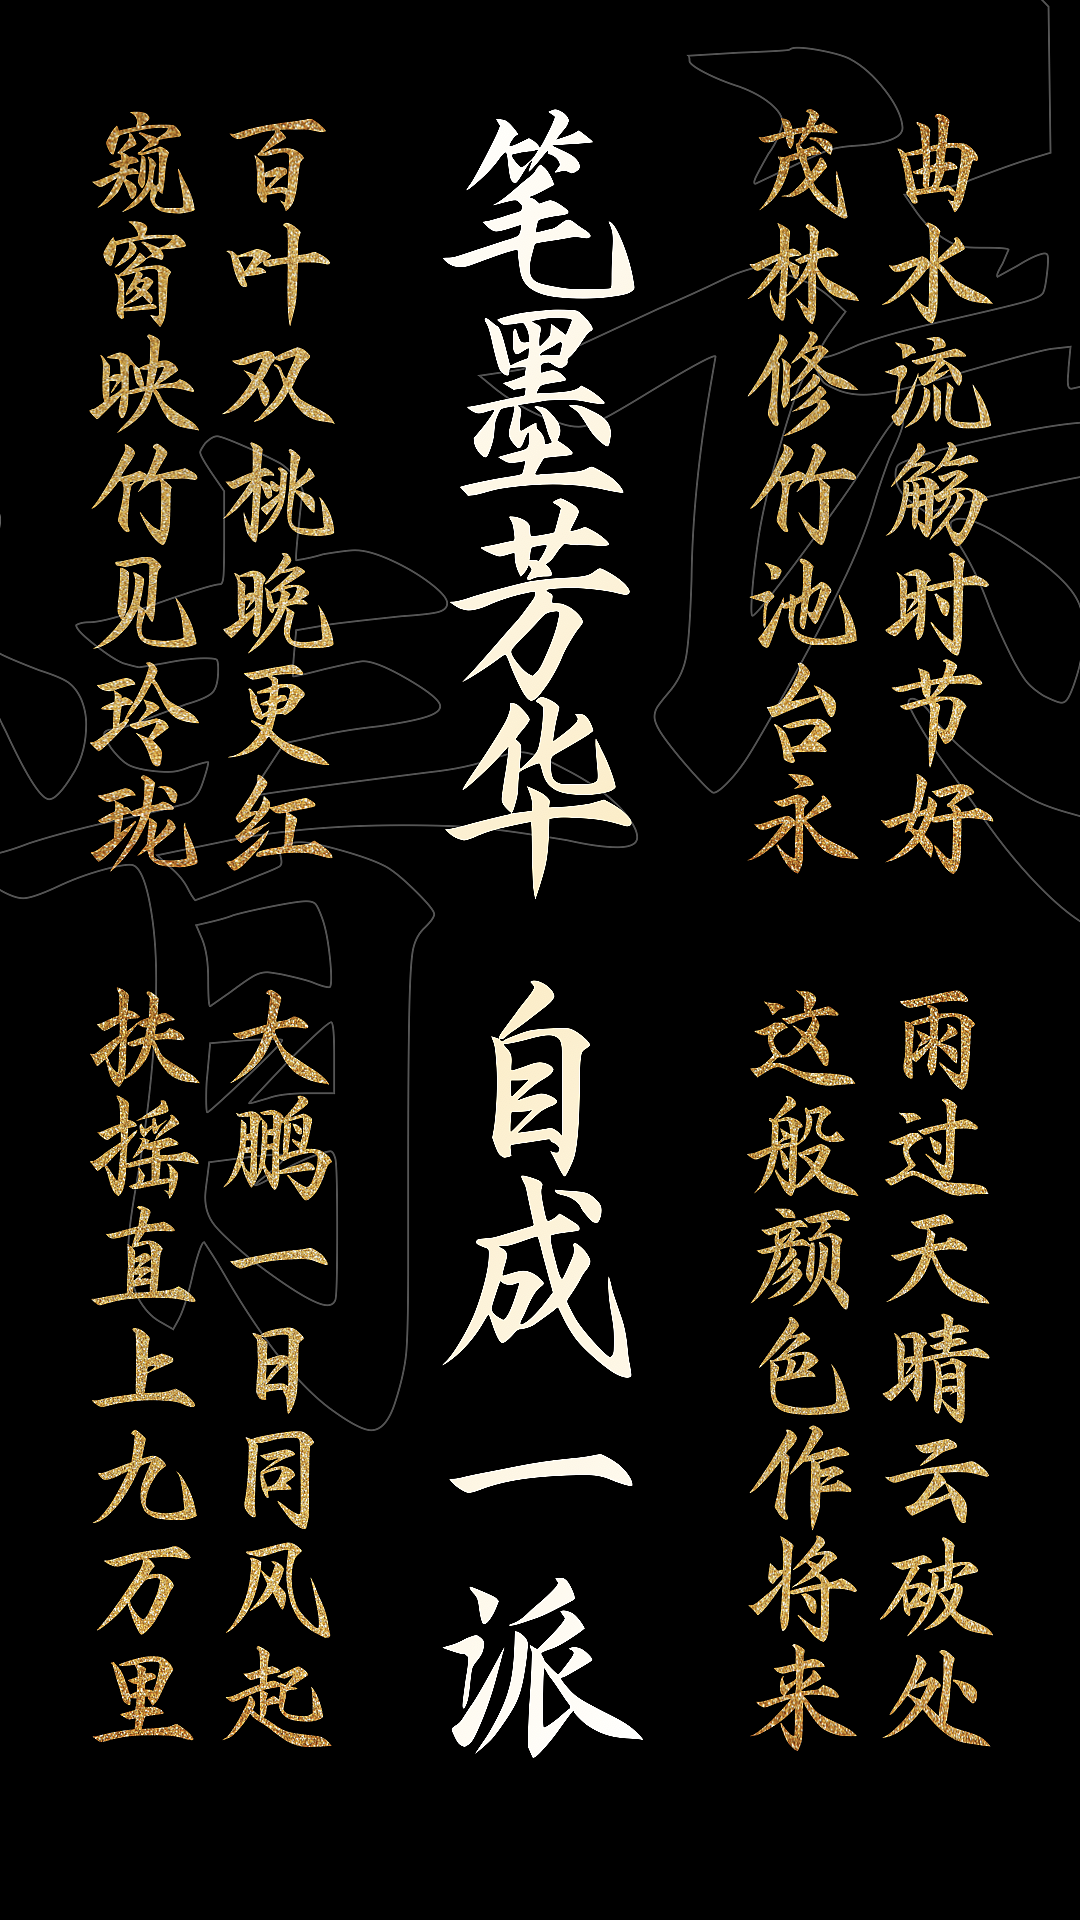 曲水流觞时节好
茂林修竹池台永
雨过天晴云破处
这般颜色作将来
笔墨芳华
自成一派
百叶双桃晚更红
窥窗映竹见玲珑
大鹏一日同风起
扶摇直上九万里